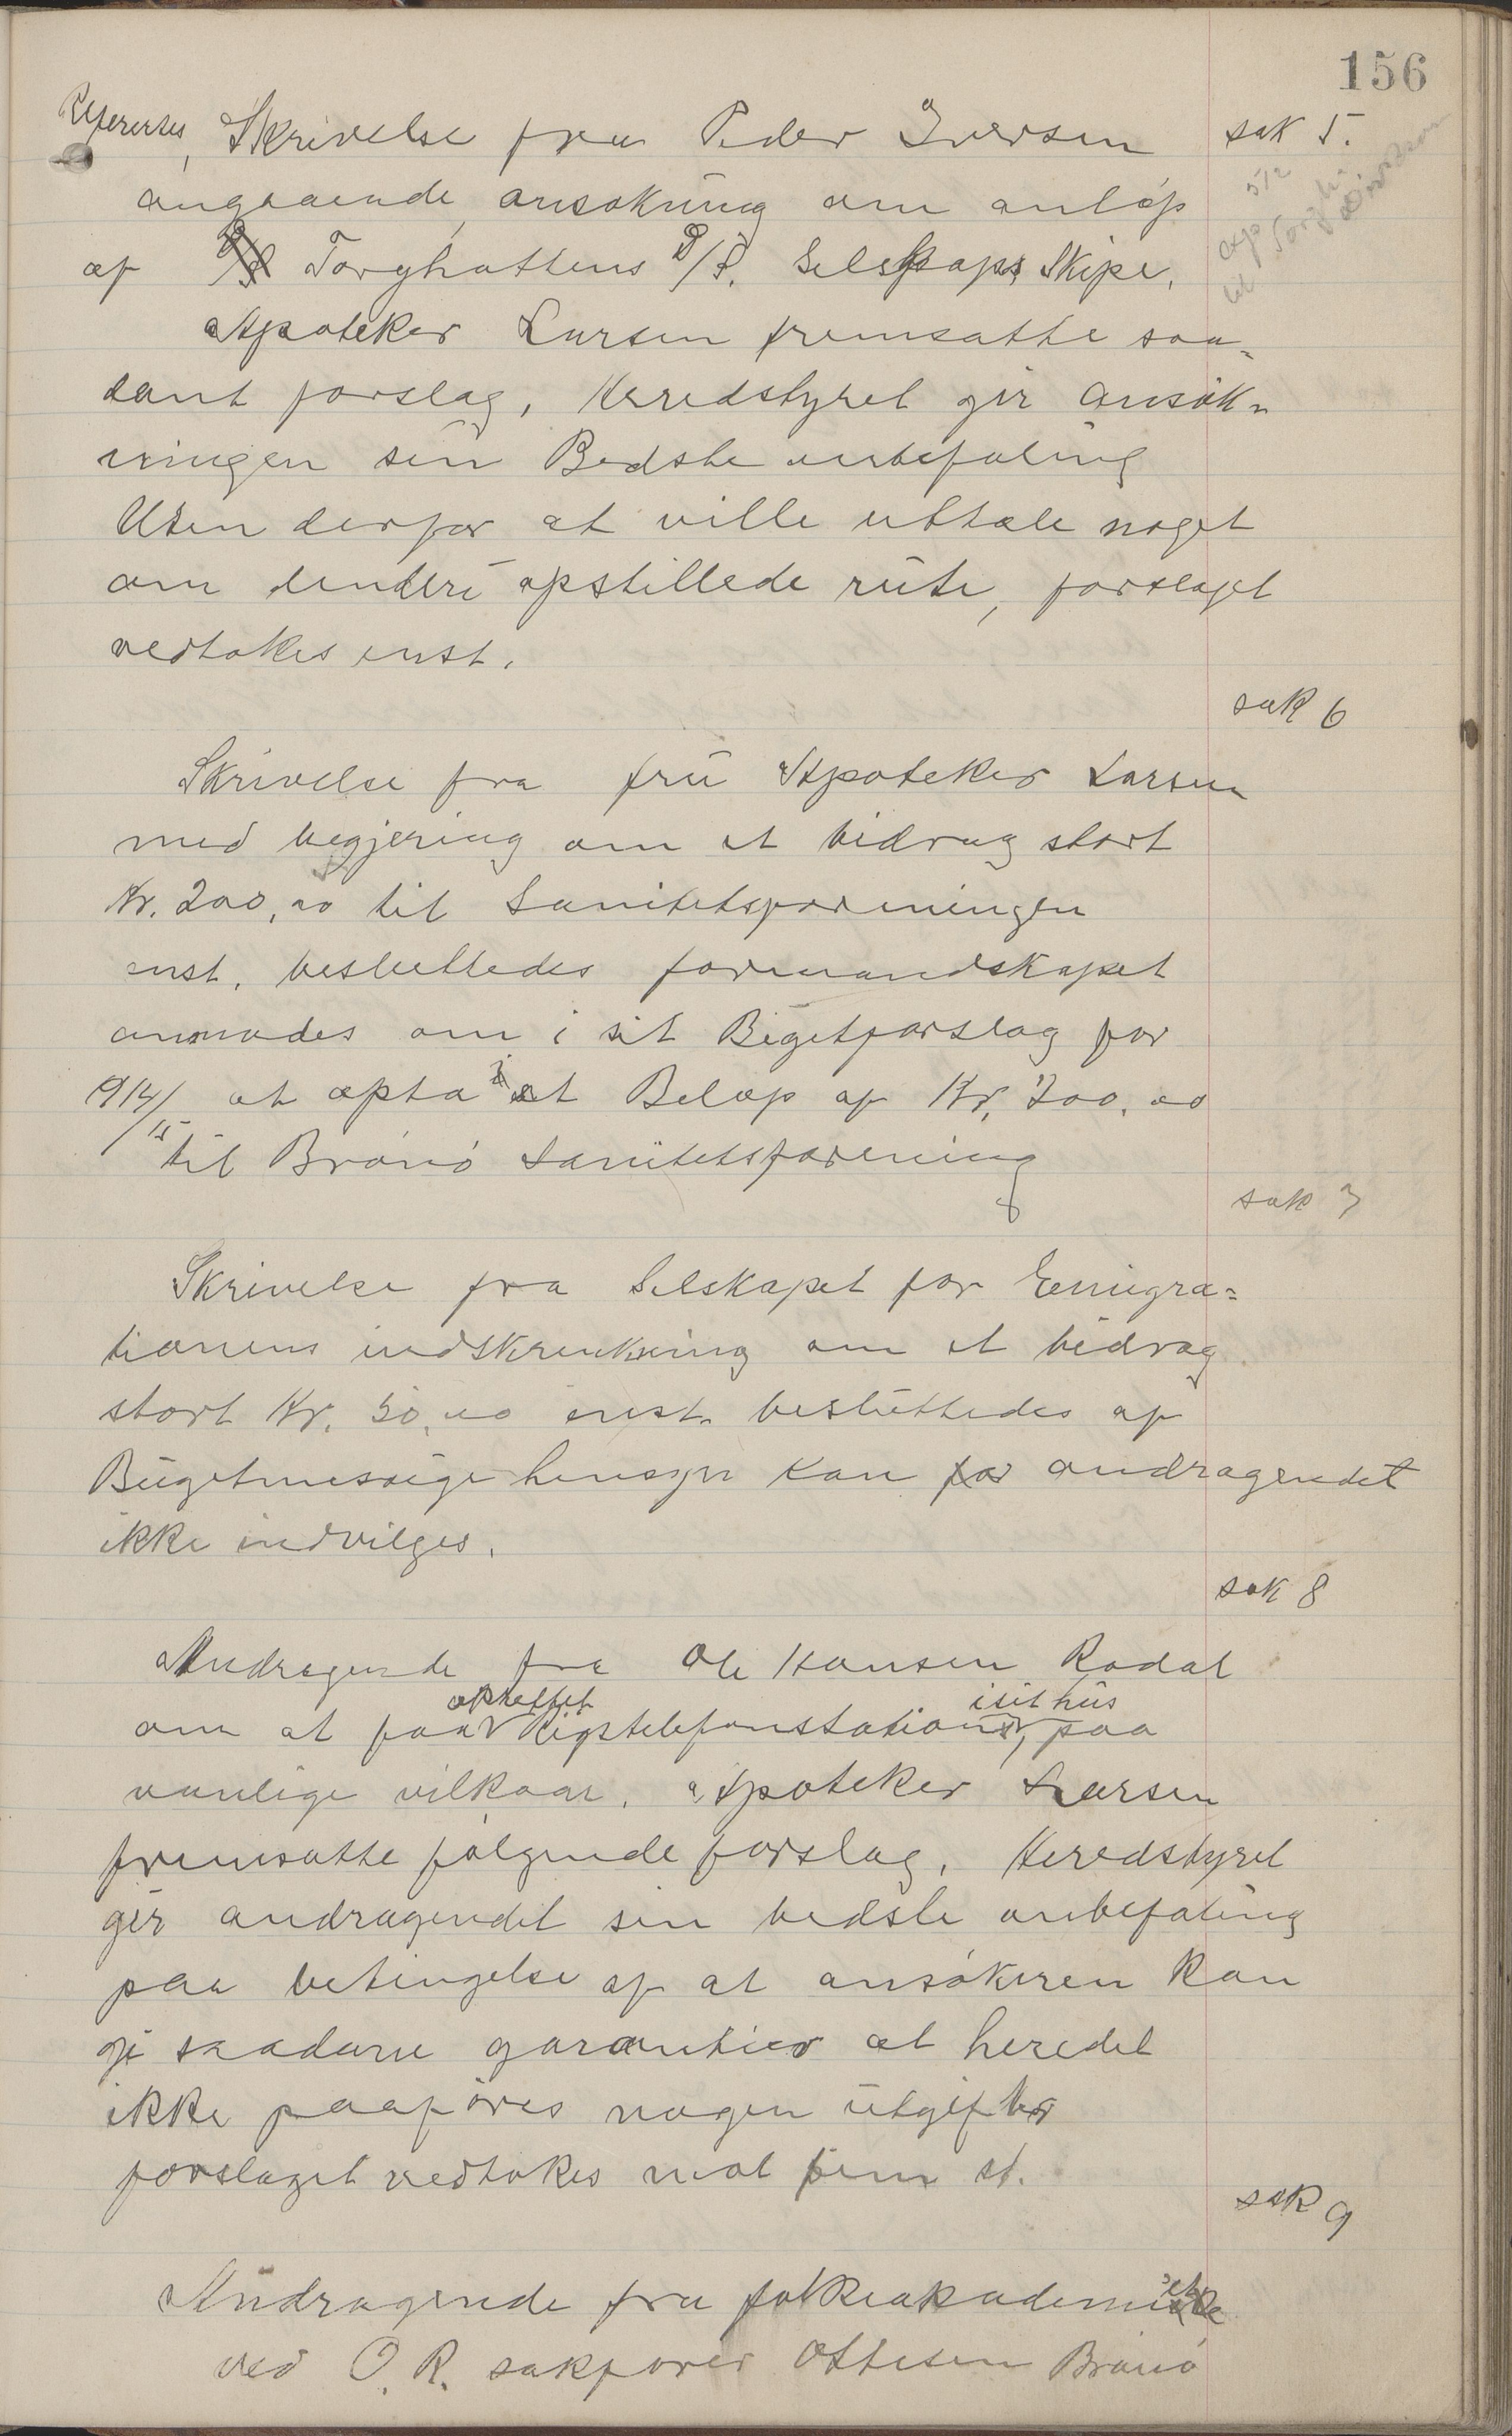 156
Refererses, Skrivelse fra Peder Iversen
sak 5.
angaaende ansøkning om anløp
af Torghattens D/S. Selskaps Skipe.
Apoteker Larsen fremsatte saa-
dant forslag, Herredstyret gir ansøk-
ningen sin Bedste anbefaling
Uten derfor at ville uttale noget
om den deri opstillede rute, forslaget
vedtokes enst.
sak 6
Skrivelse fra fru Apoteker Larsen
med begjering om et bidrag stort
Kr. 200,00 til Sanitetsforeningen
enst. besluttedes formandskapet
anmodes om i sit Bugetforslag for
1914/15 at opta et Beløp af Kr. 200.00
til Brønø Sanitetsforening
sak 7
Skrivelse fra Selskapet for Emigra-
tionens indskrenkning om et bidrag
stort Kr. 50.00 enst. besluttedes af
Bugetmessige hensyn kan andragendet
ikke indvilges.
sak 8
Andragende fra Ole Hansen Rodal
om at faa oprettet Rigstelefonstation i sit hus, paa
vanlige vilkaar. Apoteker Larsen
fremsatte følgende forslag, Heredstyret
gir andragendet sin bedste anbefaling
paa betingelse af at ansøkeren kan
gi saadanne garantier at heredet
ikke paaføres nogen utgifter
forslaget vedtokes mot fem st.
sak 9
Andragende fra folkeakademiet
ved O. R. sakfører Ottesen Brønø